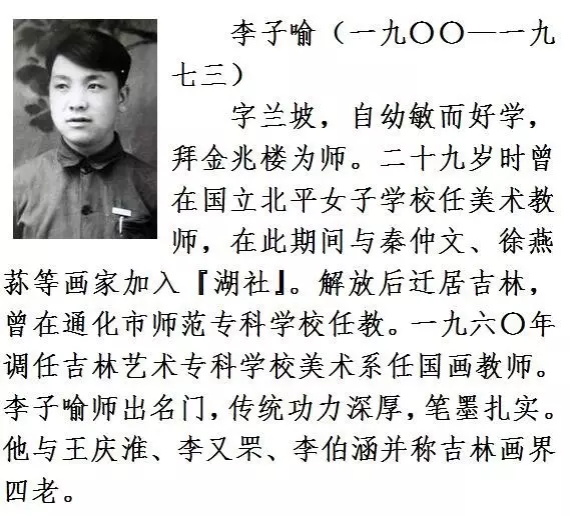 李子喻（一九〇〇—一九
七三）
字兰坡，自幼敏而好学，
拜金兆楼为师。二十九岁时曾
在国立北平女子学校任美术教
师，在此期间与秦仲文、徐燕
荪等画家加入『湖社』。解放后迁居吉林，
曾在通化市师范专科学校任教。一九六〇年
调任吉林艺术专科学校美术系任国画教师。
李子喻师出名门，传统功力深厚，笔墨扎实。
他与王庆淮、李又罘、李伯涵并称吉林画界
四老。